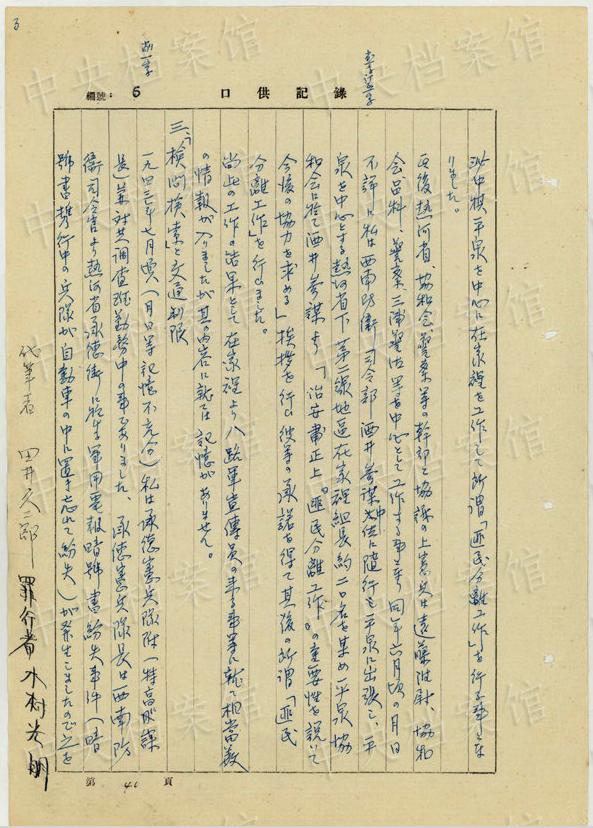 3
口供記録
編號: 5
於中旗、平泉を中心に在家裡を工作して所謂「匪民分離工作」を行ふ事とな
りました。
其後熱河省、協和会、警察等の幹部と協議の上憲兵は遠藤准尉、協和
会品料、警察三浦警佐等を中心として工作する事となり同年六月頃の月日
不詳に私は西南防衛司令部酒井参謀中佐に随行し平泉に出張し、平
泉を中心とする熱河省下第二線地區在家裡組長約二〇名を集め平泉協
和会に於て酒井参謀より「治安肅正上"匪民分離工作"の重要性を説いて
今後の協力を求める」挨拶を行ひ彼等の承諾を得て其後の所謂「匪民
分離工作」を行ひました。
尚此の工作の結果として在家裡より八路軍宣傳員の来る事等に就て相当数
の情報が入りましたが其の内容に就ては記憶がありません。
三、「検問検索と交通制限
一九四三年七月頃(月日等記憶不充分)私は承徳憲兵隊附(特高課
長)兼対共調査班勤務中の事でありました、承徳憲兵隊長は西南防
衛司令官より熱河省承徳街に於ける軍用電報暗號書紛失事件(暗
號書携行中の兵隊が自動車の中に置き忘れて紛失)が発生しましたので之を
代筆者 田井久二郎 罪行者 木村光明
第 46 頁
中央档案馆